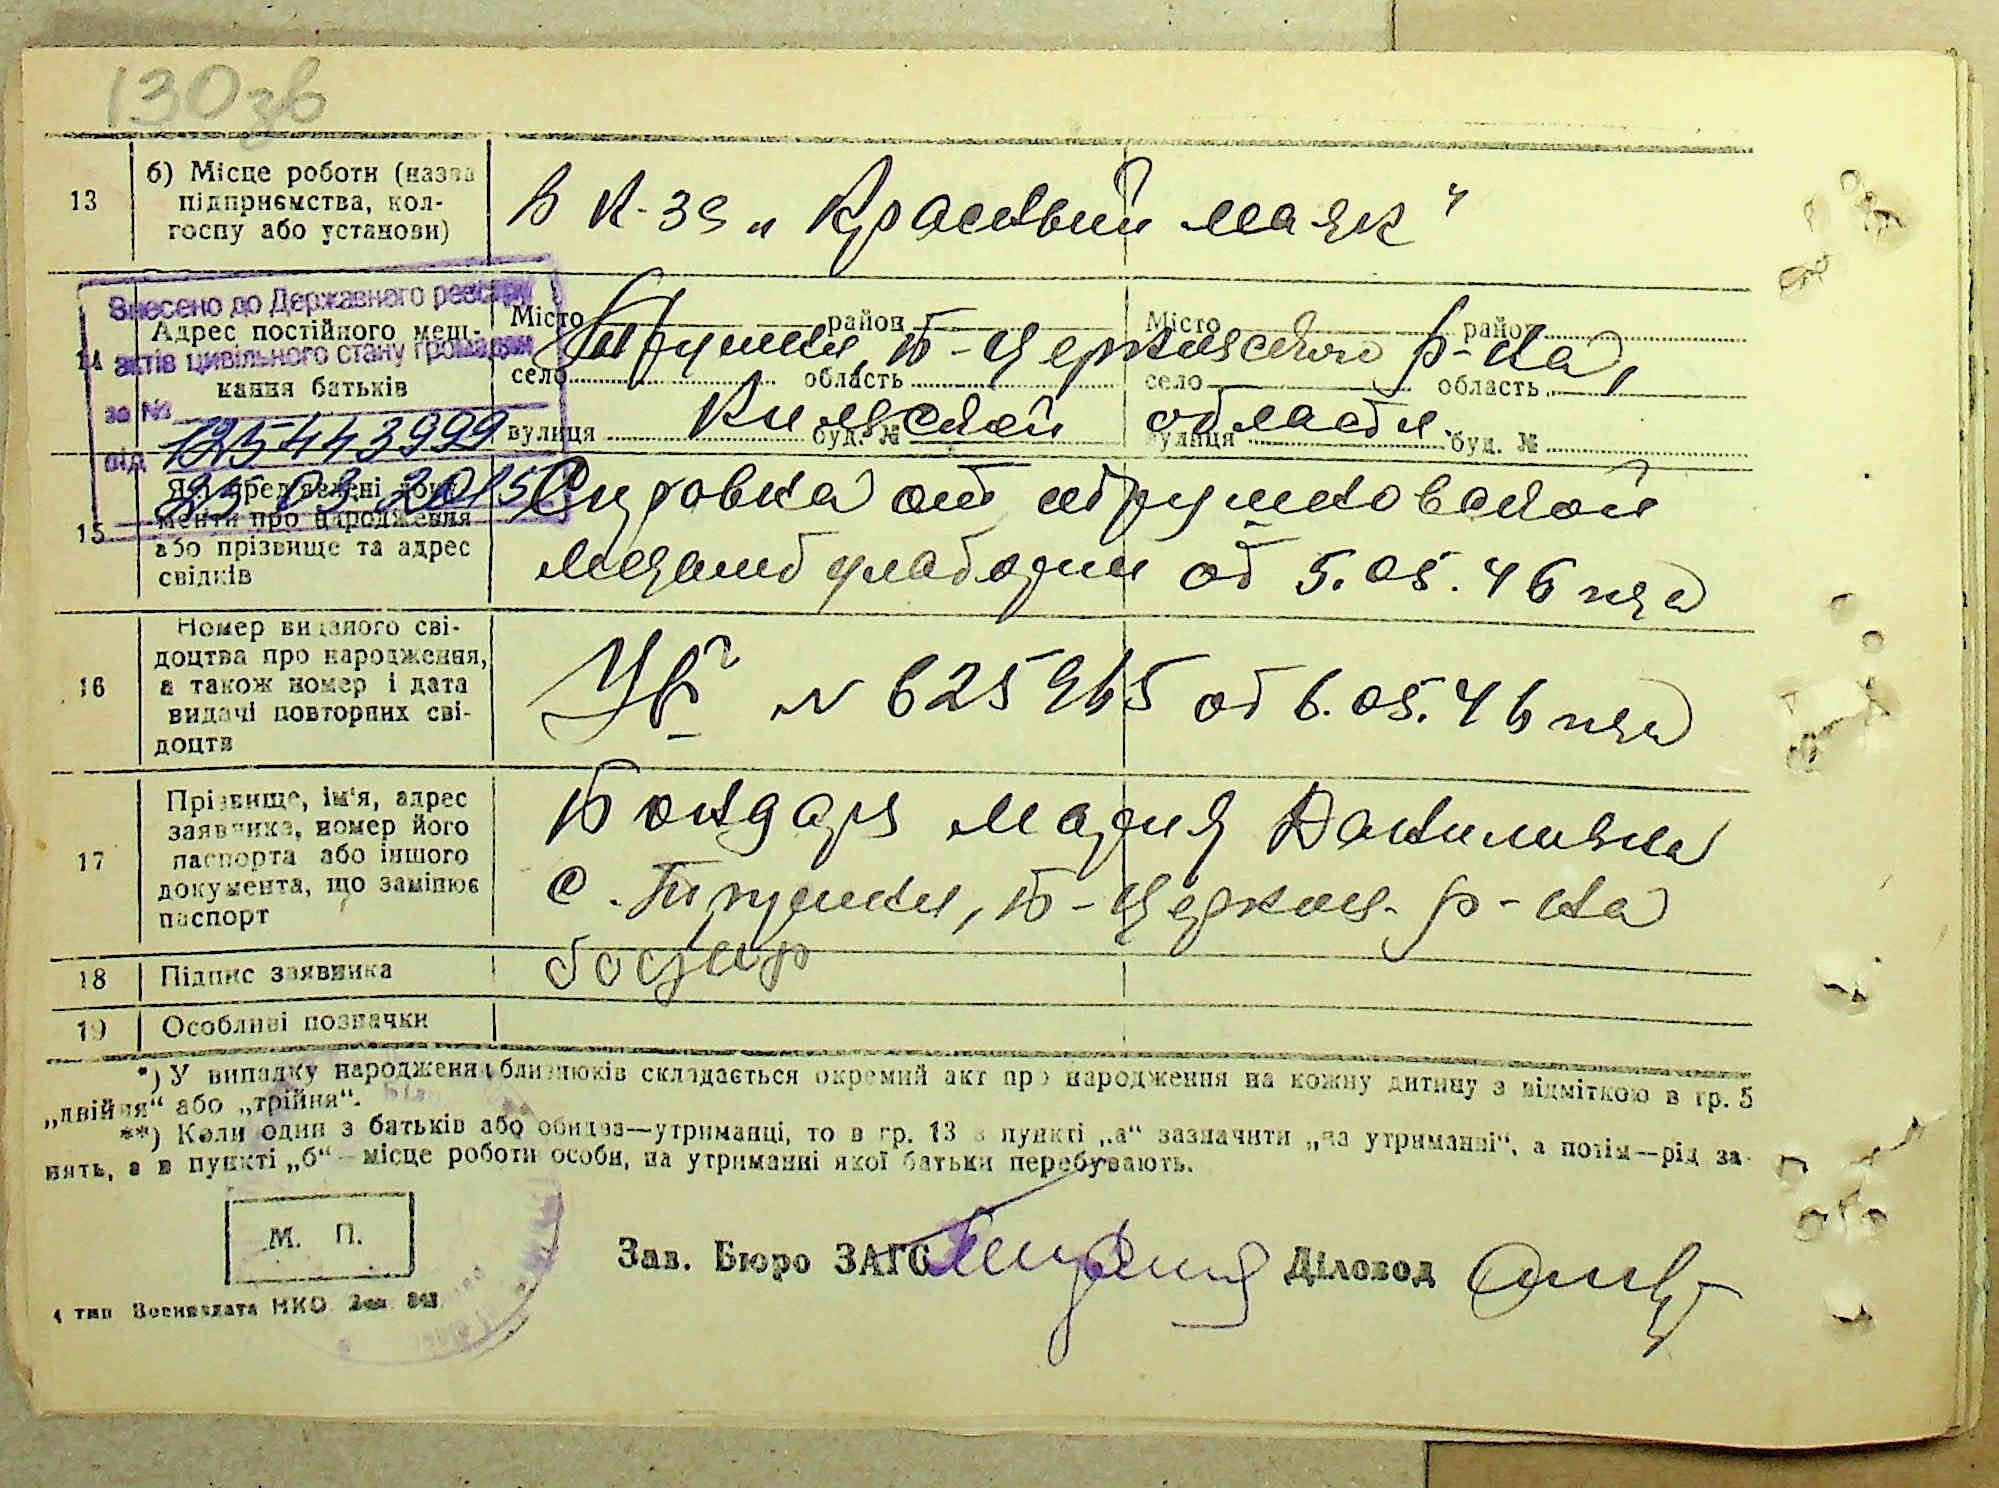 130зв
13
б) Місце роботи (назва
підприємства, кол-
госпу або установи)
В к-зе „Красный маяк“
Внесено до Державного реєстру
актів цивільного стану громадян
за №
12544 3999
від
25 03 2015
14
Адрес постійного меш-
кання батьків
Місто район
село область
вулиця буд. №
Місто район
село область
вулиця буд. №
Трушки, Б-Церковского р-на,
Киевской области.
15
Які пред'явлені доку-
менти про народження
або прізвище та адрес
свідків
Справка от Трушковской
от 5.05.46 года
16
Номер виданого сві-
доцтва про народження,
а також номер і дата
видачі повторних сві-
доцтв
№ 625965 от 6.05.46 года
17
Прізвище, ім'я, адрес
заявника, номер його
паспорта або іншого
документа, що замінює
паспорт
Бондарь Мария Даниловна
с. Трушки, Б-Церков. р-на
18
Підпис заявника
19
Особливі позначки
*) У випадку народження близнюків складається окремий акт про народження на кожну дитину з відміткою в гр. 5
„двійня“ або „трійня“.
**) Коли один з батьків або обидва—утриманці, то в гр. 13 в пункті „а“ зазначити „на утриманні“, а потім—рід за-
нять, а в пункті „б“—місце роботи особи, на утриманні якої батьки перебувають.
М. П.
Зав. Бюро ЗАГС
Діловод
4 тип Воениздата НКО Зак